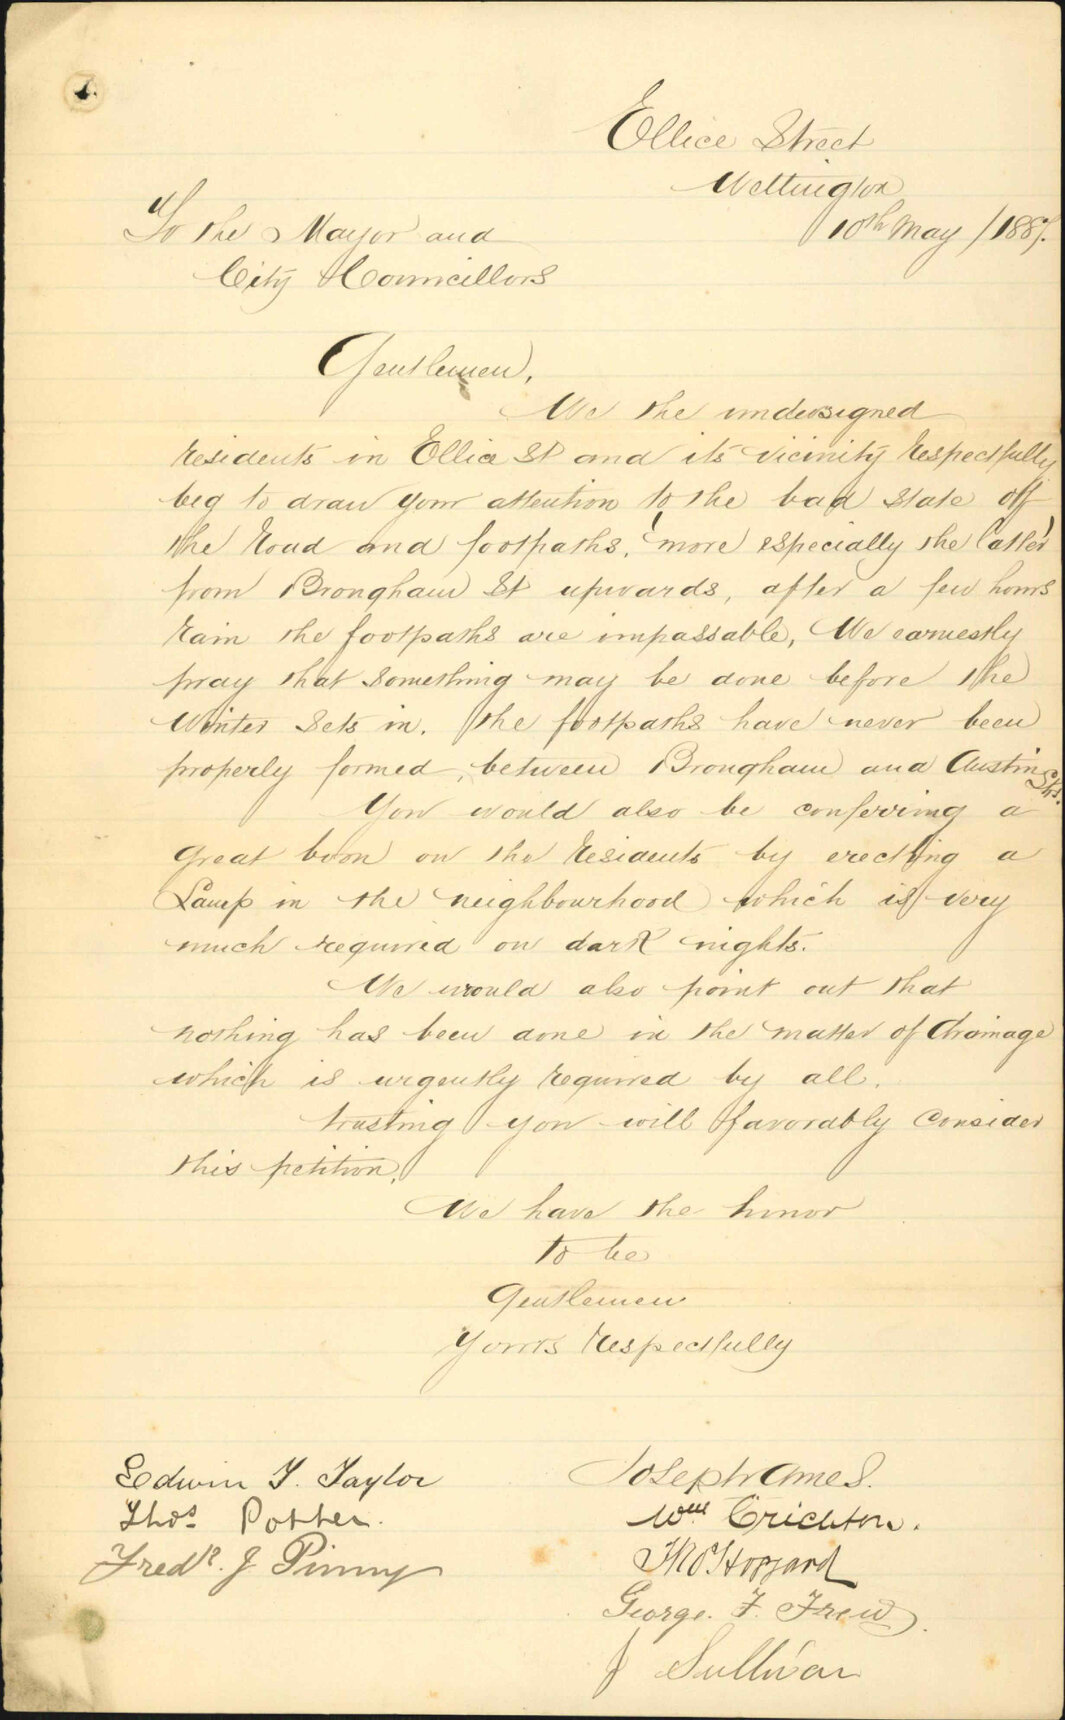 Ellice Street
Wellington
10th May /1887.
To the Mayor and
City Councillors
Gentlemen,
We the undersigned
residents in Ellice St and its vicinity respectfully
beg to draw your attention to the bad state off
the road and footpaths, more especially the latter
from Brougham St upwards, after a few hours
rain the footpaths are impassable, We earnestly
pray that something may be done before the
Winter sets in. the footpaths have never been
properly formed, between Brougham and Austin Sts.
You would also be conferring a
great boon on the residents by erecting a
Lamp in the neighbourhood which is very
much required on dark nights.
We would also point out that
nothing has been done in the matter of drainage
which is urgently required by all.
trusting you will favorably consider
this petition,
We have the honor
to be
Gentlemen
Yours respectfully
Edwin T. Taylor
Joseph Ames.
Thos. Potter.
Wm Crichton.
Fredk. J Pinny
George. F. Frew.
J Sullivan